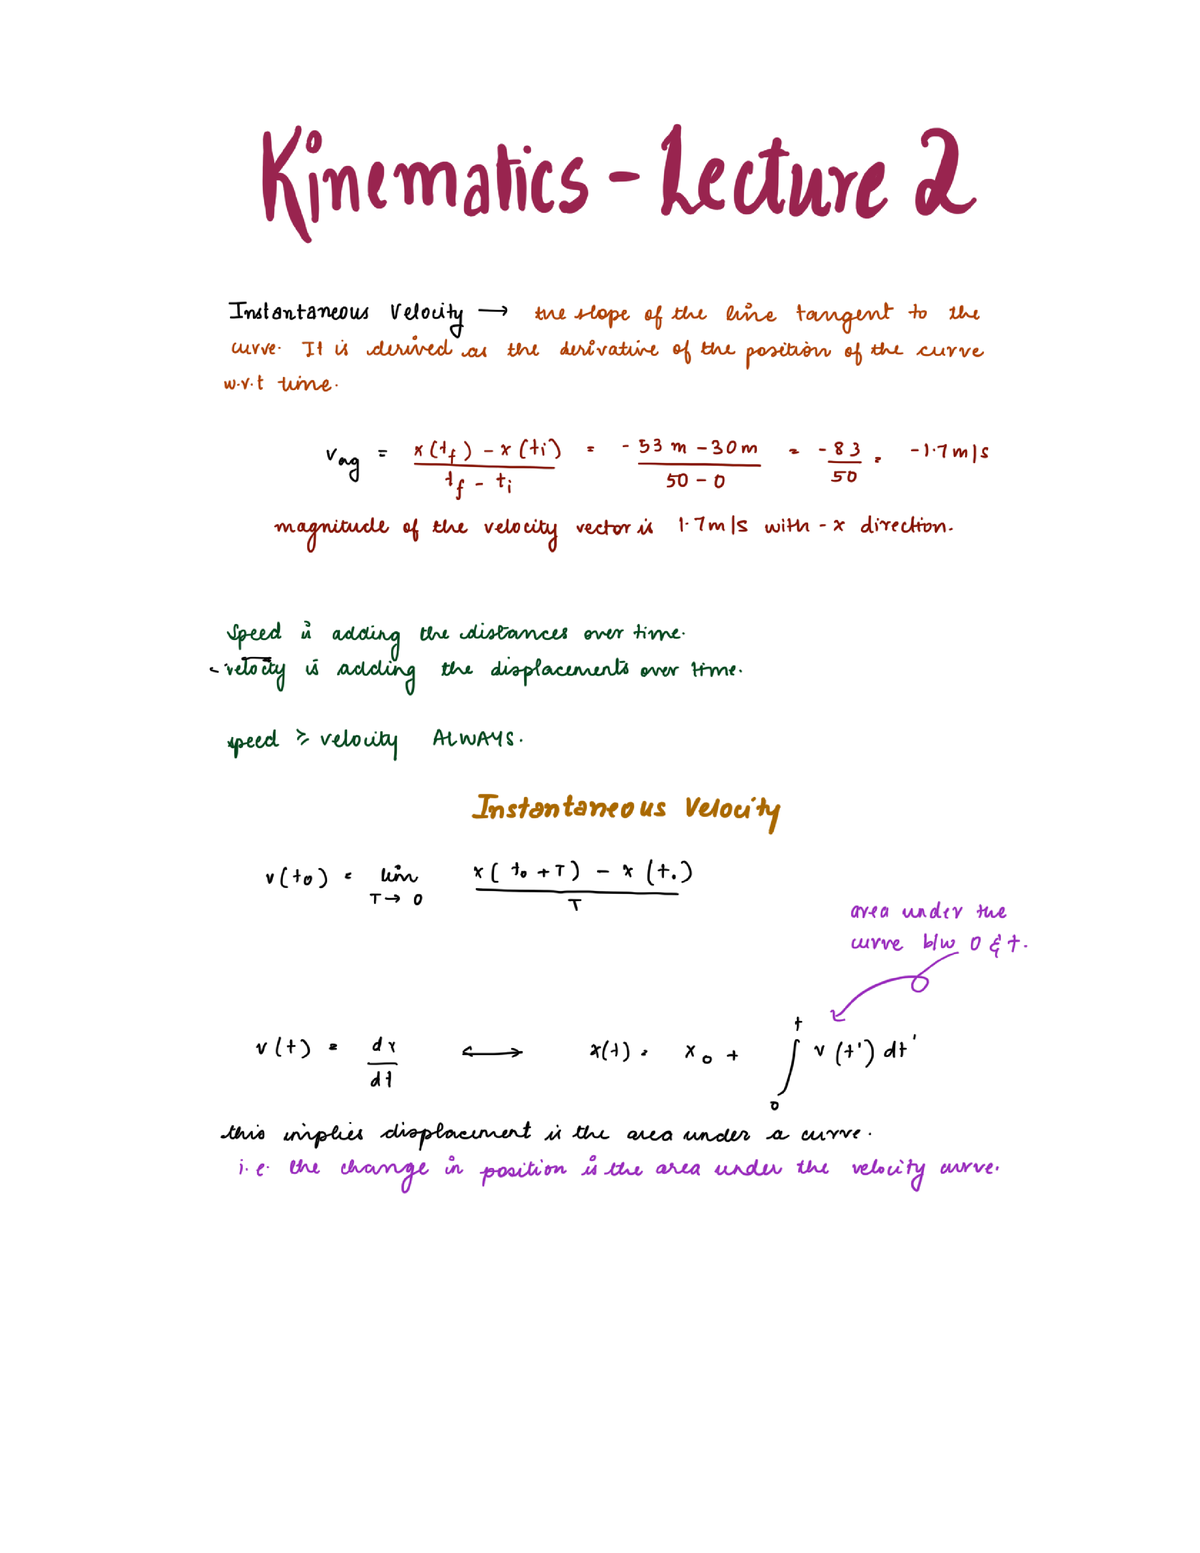 Kinematics - Lecture 2
Instantaneous Velocity → the slope of the line tangent to the
curve. It is derived as the derivative of the position of the curve
w.r.t time.
vag = x(tf) - x(ti) / tf - ti = -53 m - 30 m / 50 - 0 = -83 / 50 = -1.7 m/s
magnitude of the velocity vector is 1.7 m/s with -x direction.
Speed is adding the distances over time.
velocity is adding the displacements over time.
speed ≥ velocity ALWAYS.
Instantaneous Velocity
v(t0) = lim T→0 x(t0 + T) - x(t0) / T
area under the
curve b/w 0 & t.
v(t) = dx/dt ⟷ x(t) = x0 + ∫0^t v(t') dt'
this implies displacement is the area under a curve.
i.e. the change in position is the area under the velocity curve.